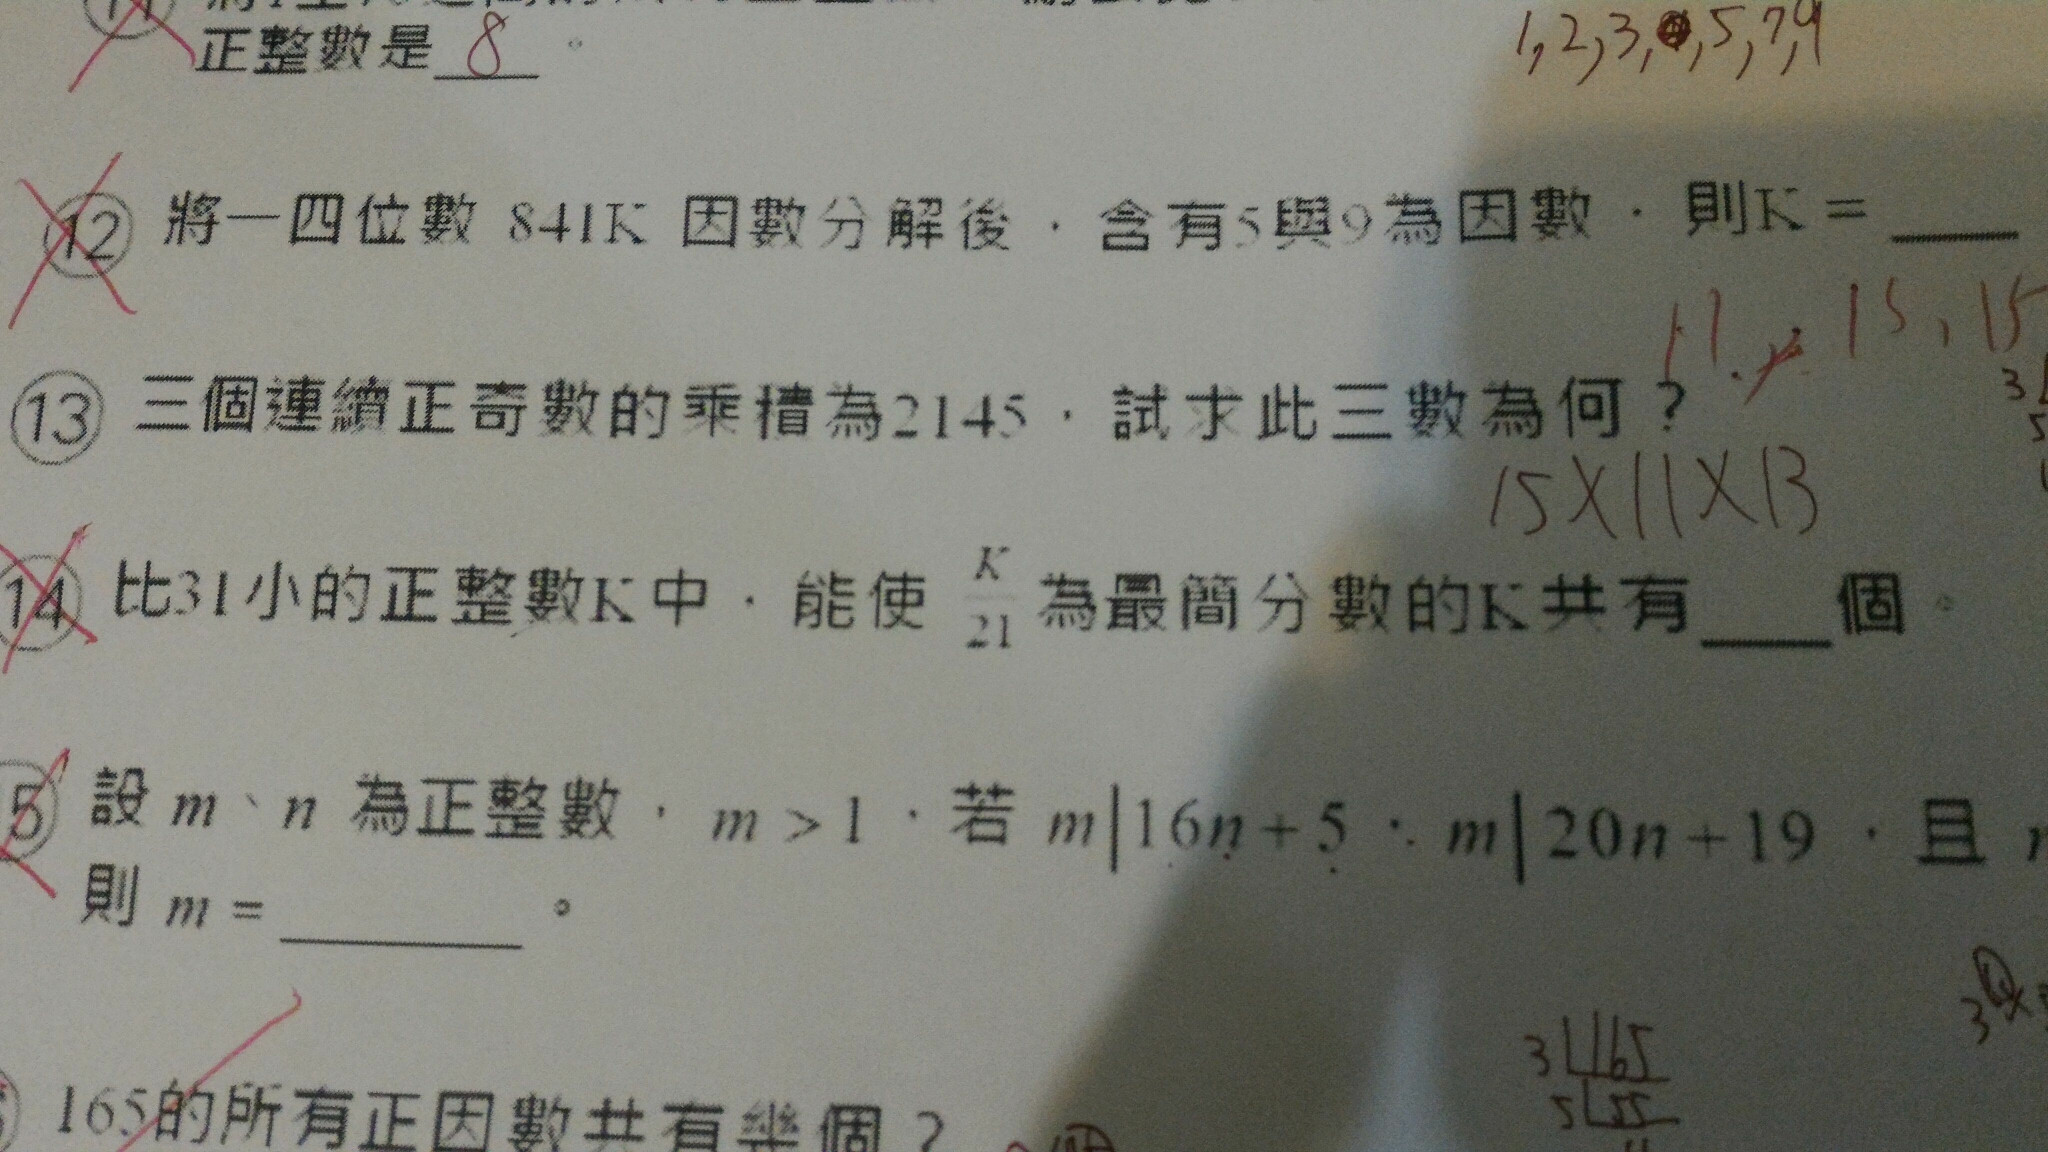 正整數是 8 。
1, 2, 3, 5, 7, 9
12 將一四位數 841K 因數分解後，含有5與9為因數，則K =
11, 15, 15
13 三個連續正奇數的乘積為2145，試求此三數為何？
15×11×13
14 比31小的正整數K中，能使 K/21 為最簡分數的K共有___個。
5 設 m、n 為正整數，m > 1，若 m|16n + 5，m|20n + 19，且
則 m = ______ 。
3 165
5 55
165的所有正因數共有幾個？